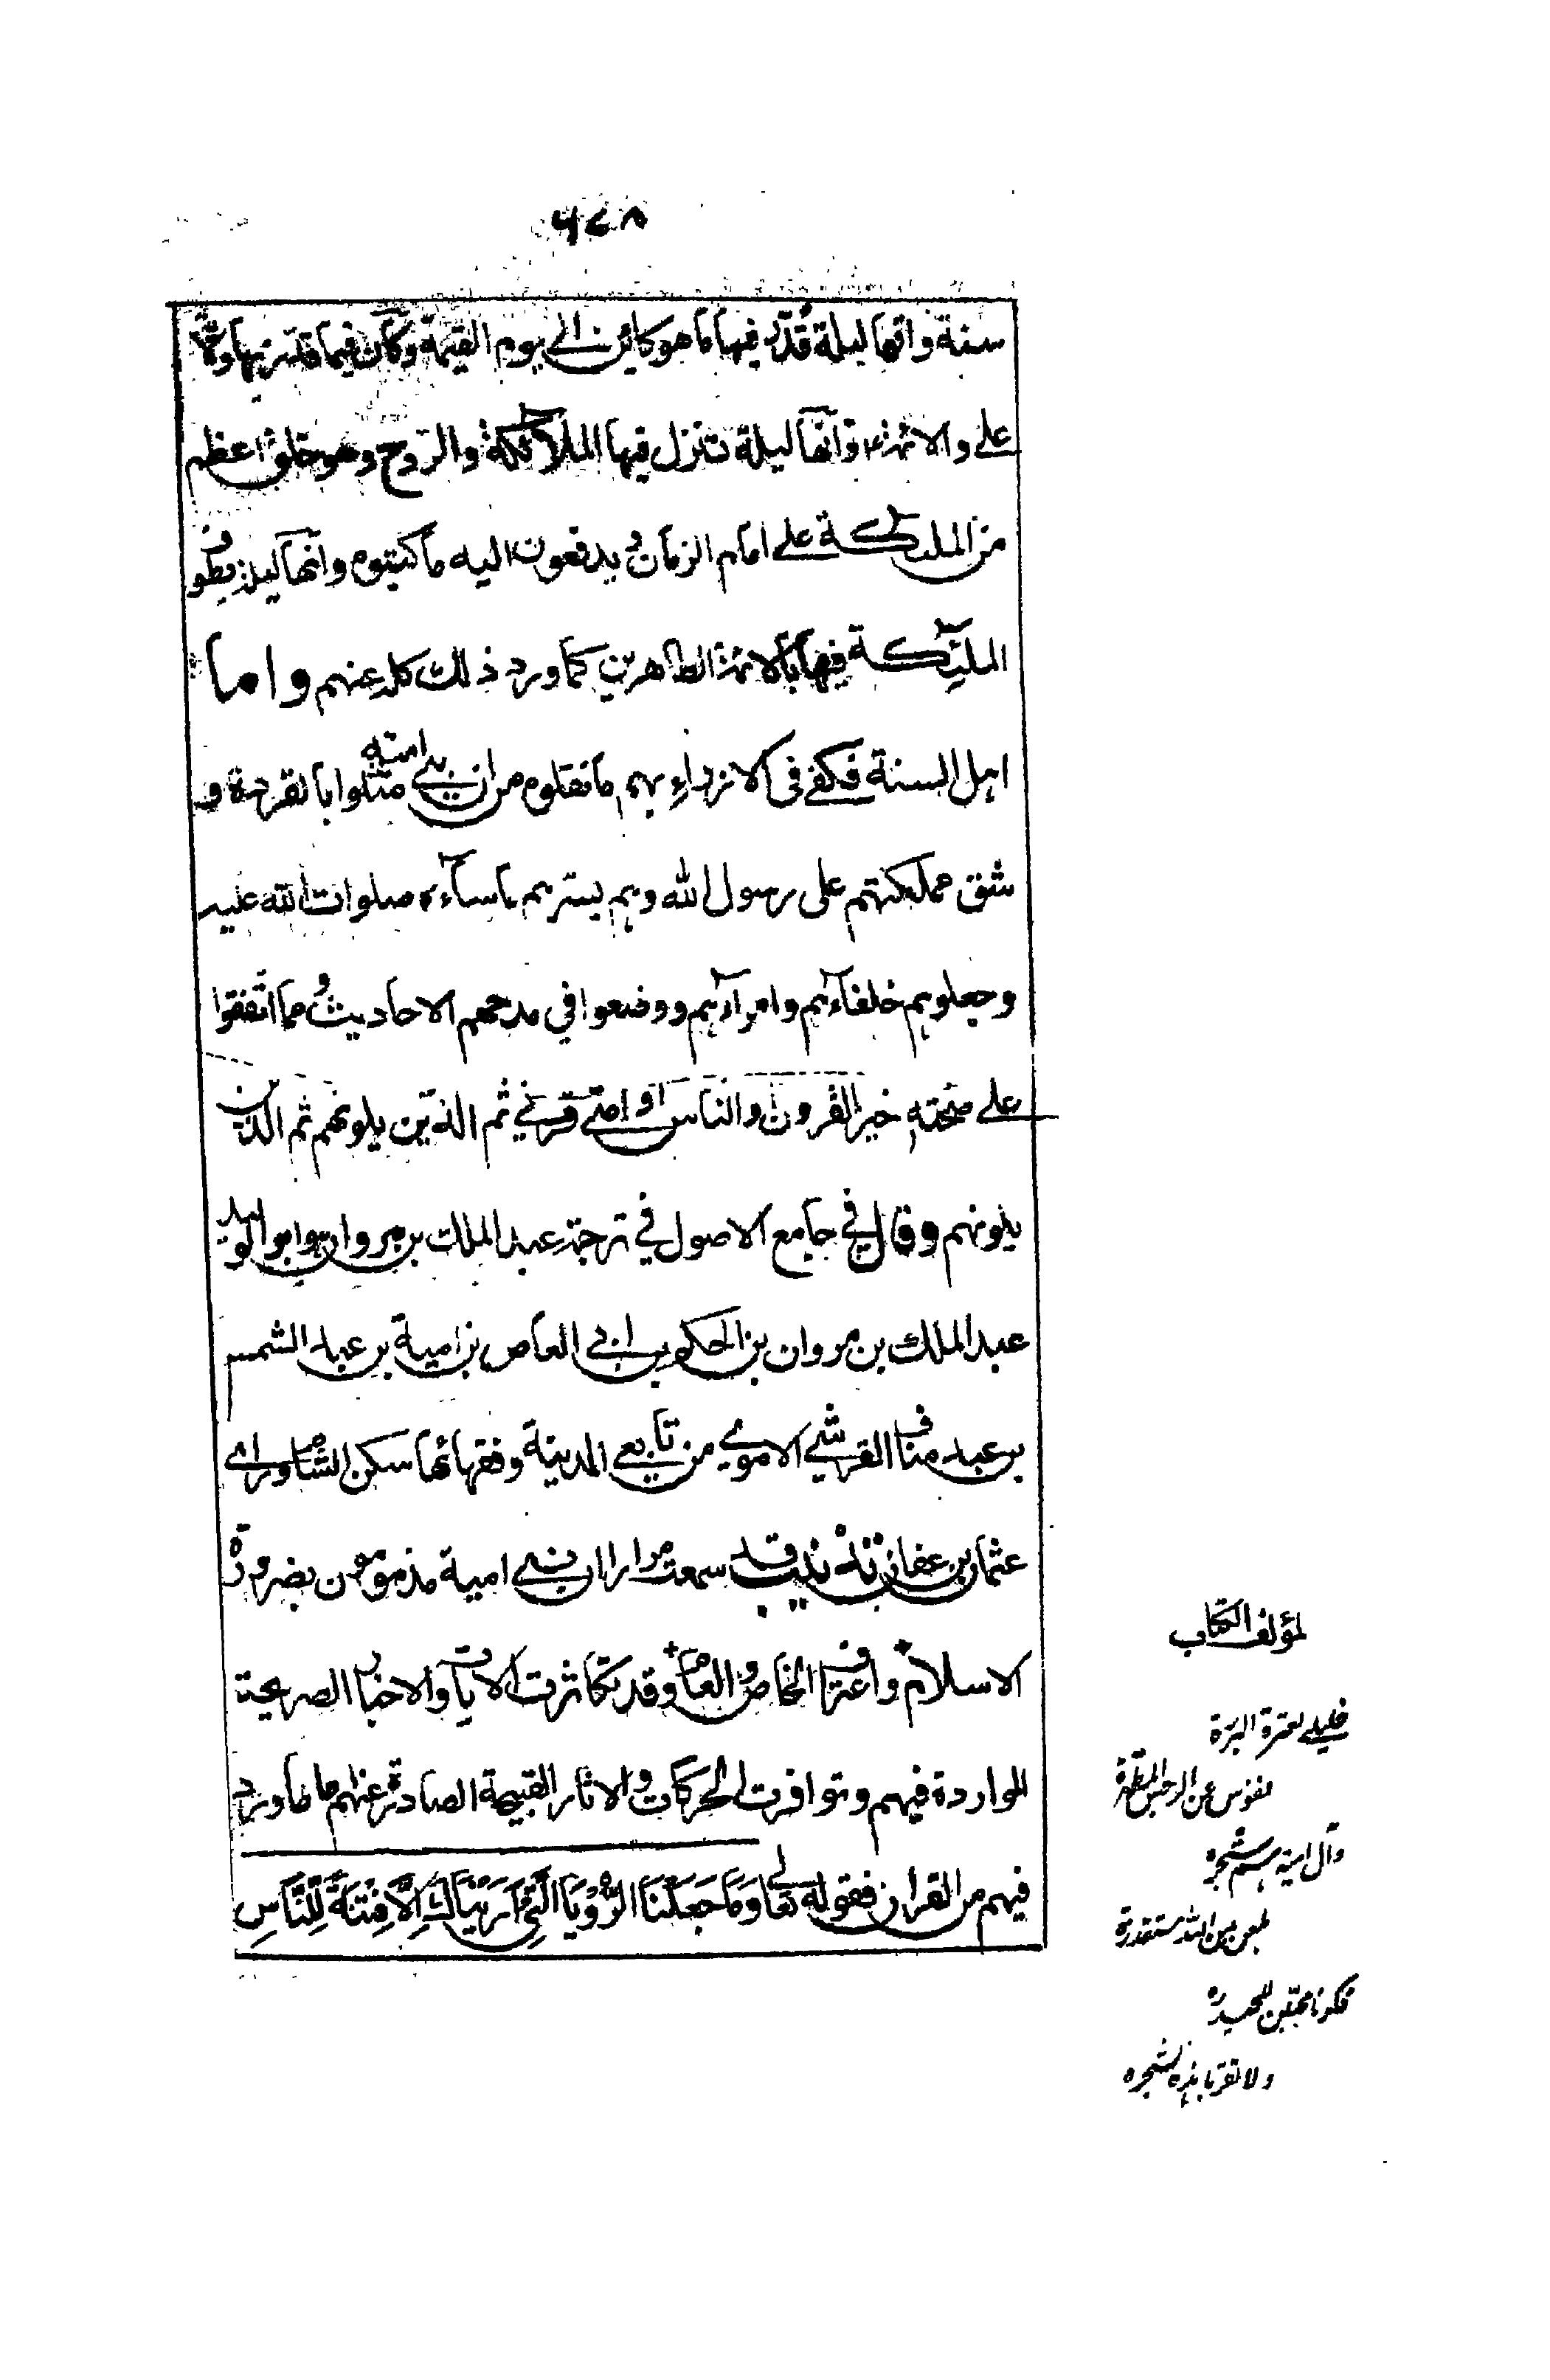 ۶۷۸
سنة وانها ليلة قُدّر فيها ما هو كائن الى يوم القيمة وكان فيما قدّر فيها ولاية
على والائمة ع وانها ليلة تنزل فيها الملائكة والروح وهو خلق اعظم
من الملئكة على امام الزمان و يدفعون اليه ما كتبوه وانها ليلة يطوف
الملئكة فيها بالائمة الطاهرين كما ورد ذلك كله عنهم واما
اهل السنة فكفى فى الازراء بهم ما نقلوه من ان بنى امية مثلوا بالقردة و
شق مملكتهم على رسول الله وهم بسترهم باساءة صلوات الله عليه
وجعلوهم خلفاءهم وامراءهم ووضعوا في مدحهم الاحاديث و مما اتفقوا
على صحته خير القرون والناس او امتى قرني ثم الذين يلونهم ثم الذين
يلونهم وقال في جامع الاصول في ترجمة عبد الملك بن مروان هو ابو الوليد
عبد الملك بن مروان بن الحكم بن ابي العاص بن امية بن عبد الشمس
بن عبد مناف القرشي الاموي من تابعي المدينة وفقهائها سكن الشام وراى
عثمان بن عفان تذنيب قد سمعت مرارا ان بنى امية مذمومون بضرورة
الاسلام واعتراف الخاص والعام وقد تكاثرت الايات والاخبار الصريحة
الواردة فيهم وتوافرت الحركات والاثار القبيحة الصادرة عنهم اما ما ورد
فيهم من القران فقوله تعالى وَمَا جَعَلْنَا الرُّؤْيَا الَّتِي اَرَيْنَاكَ اِلَّا فِتْنَةً لِلنَّاسِ
لمؤلف الكتاب
خليلى لعترة البررة
نفوس عن الرجس المطهرة
وآل امية هم شجرة
لعن من الله مستقذرة
فكونا محبين للحيدره
ولا تقربا هذه الشجره